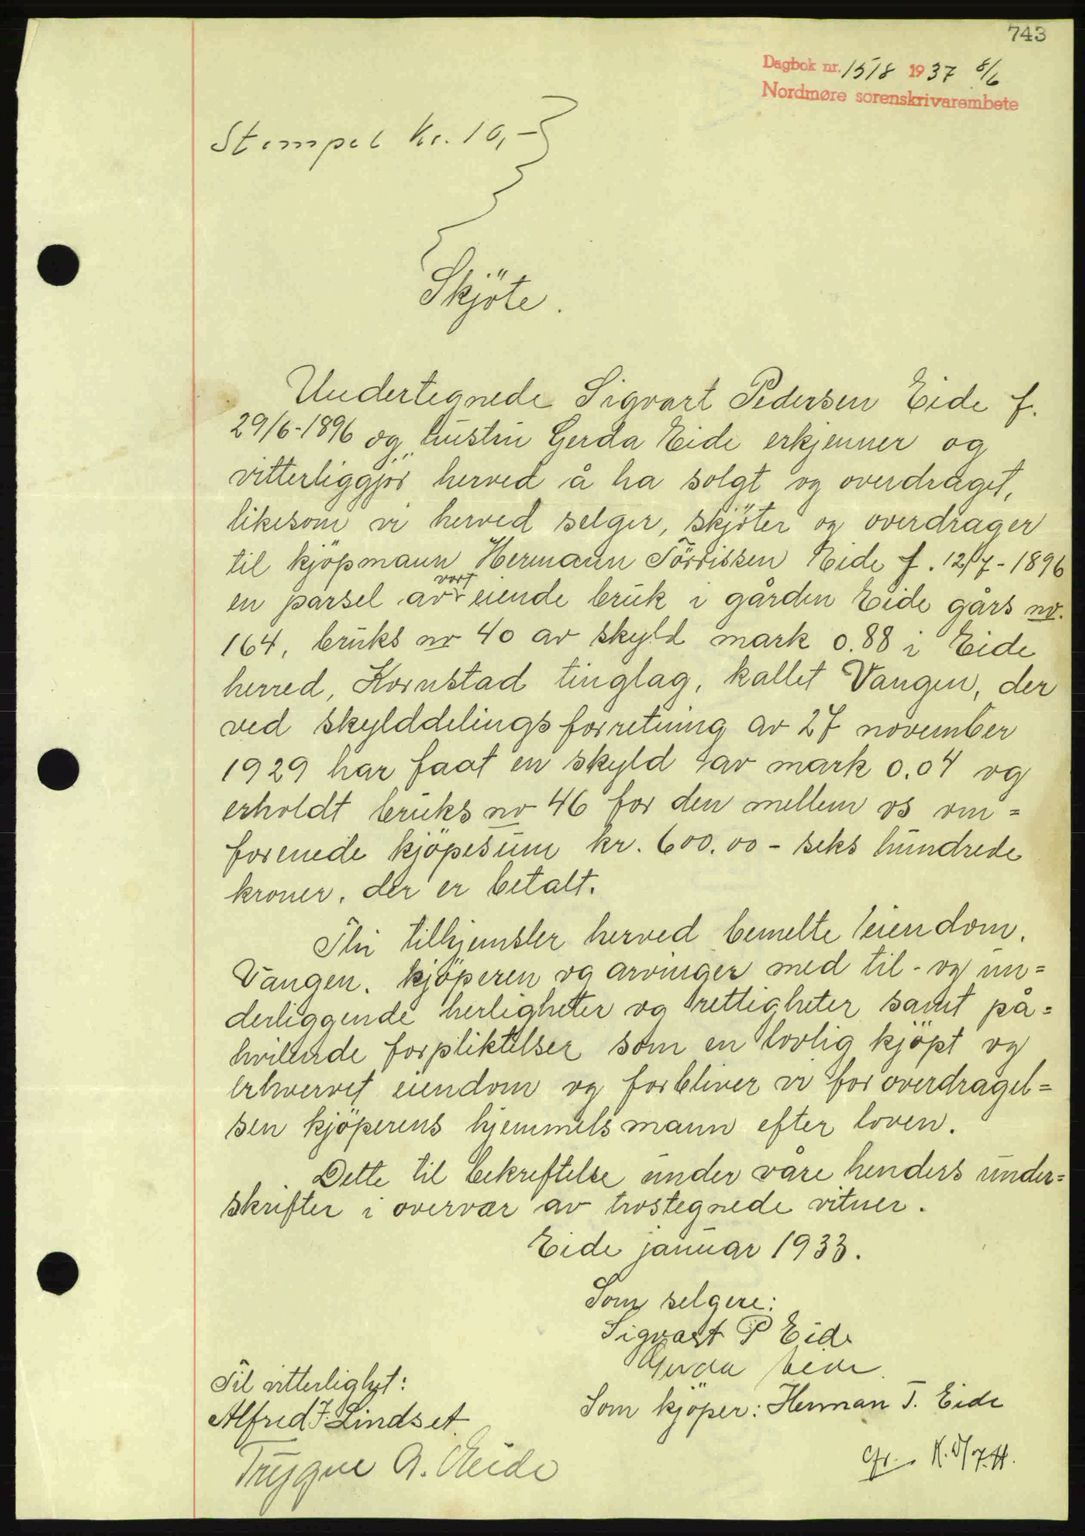 743
Dagbok nr. 1518 1937 8/6
Nordmøre sorenskrivarembete
Stempel kr. 10,-
Skjöte.
Undertegnede Sigvart Pedersen Eide f.
29/6-1896 og hustru Gerda Eide erkjenner og
vitterliggjör herved å ha solgt og overdraget,
likesom vi herved selger, skjöter og overdrager
til kjöpmann Hermann Törrissen Eide f. 12/7-1896
en parsel av vort eiende bruk i gården Eide gårs nr.
164, bruks nr 40 av skyld mark 0.88 i Eide
herred, Kornstad tinglag, kallet Vangen, der
ved skylddelingsforretning av 27 november
1929 har faat en skyld av mark 0.04 og
erholdt bruks nr 46 for den mellem os om=
forenede kjöpesum kr. 600.00 - seks hundrede
kroner, der er betalt.
Thi tilhjemsler herved bemelte eiendom,
Vangen, kjöperen og arvinger med til- og un=
derliggende herligheter og rettigheter samt på=
hvilende forpliktelser som en lovlig kjöpt og
erhvervet eiendom og forbliver vi for overdragel=
sen kjöperens hjemmelsmann efter loven.
Dette til bekreftelse under våre henders under=
skrifter i overvær av trostegnede vitner.
Eide januar 1933.
Som selgere:
Sigvart P Eide
Gerda Eide.
Til vitterlighet:
Som kjöper: Herman T. Eide
Alfred J. Lindset
Trygve A. Eide